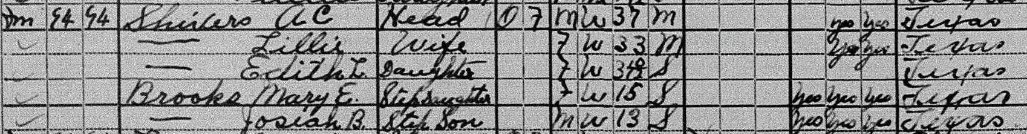 Fm 94 94 Shivers A C Head O F M W 37 M yes yes Texas
— Lillie Wife F W 33 M yes yes Texas
— Edith L. Daughter F W S Texas
Brooks Mary E. Step Daughter F W 15 S yes yes yes Texas
— Josiah B. Step Son M W 13 S yes yes yes Texas